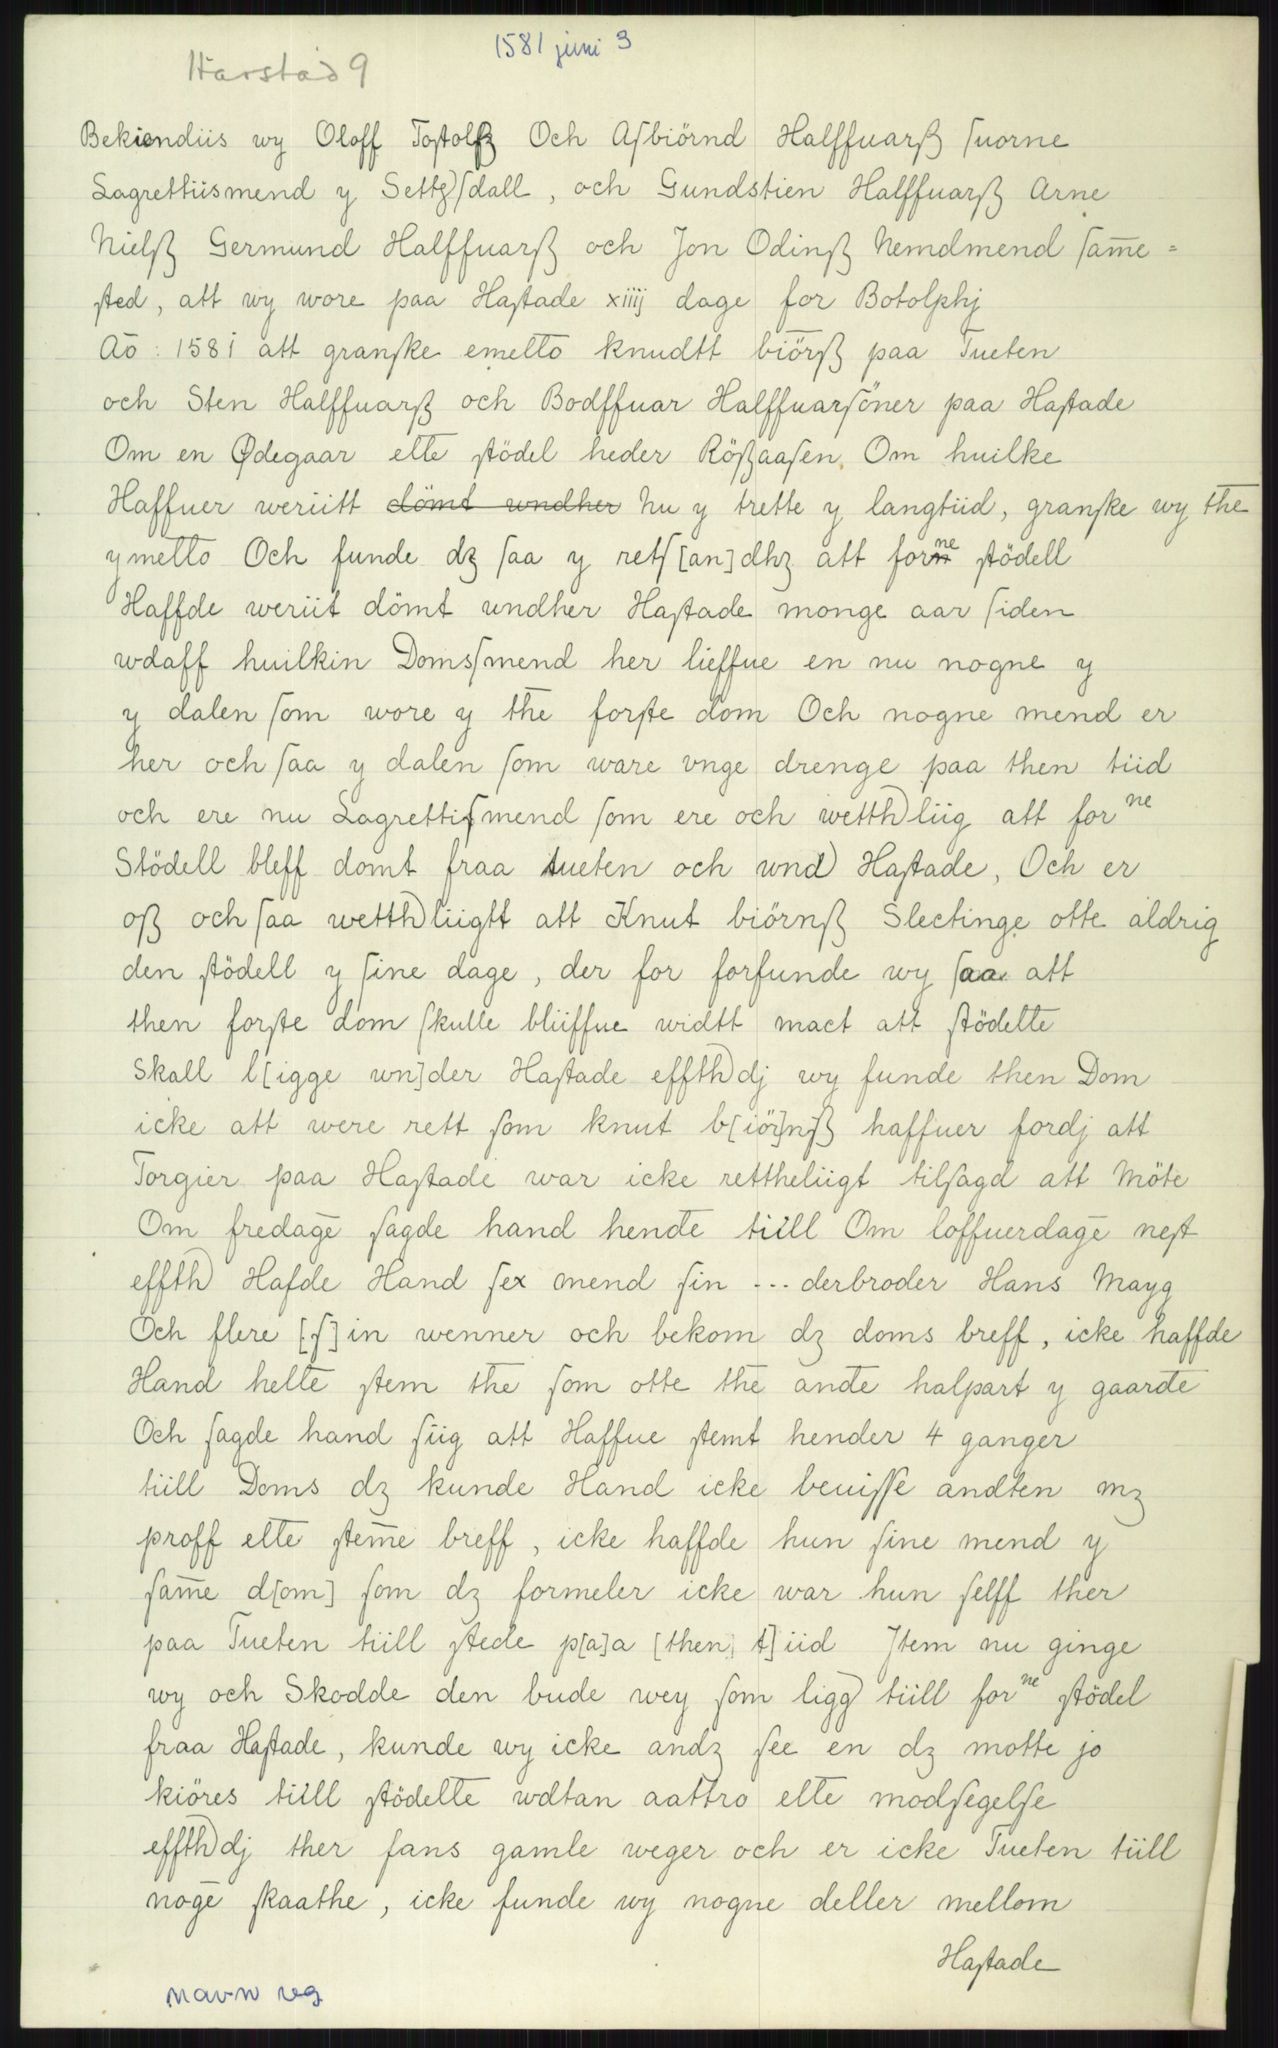 1581 juni 3
Harstad 9
Bekiendiis wy Oloff Tostolß Och Asbiörnd Halffuarß suorne
Lagrettiismend y Settzsdall, och Gundstien Halffuarß Arne
Nielß Germund Halffuarß och Jon Odinß Nemdmend sam̅e =
sted, att wy wore paa Hastade xiiij dage for Botolphj
Aō : 1581 att granske emello knudtt biörß paa Tueten
och Sten Halffuarß och Bodffuar Halffuarsöner paa Hastade
Om en Ødegaar elle stödel heder Rößaasen. Om huilke
Haffuer weriitt ~~dömt wndher~~ Nu y trette y langtiid, granske wy the
ymello Och funde dz saa y rets[an]dhz att forne stödell
Haffde weriit dömt undher Hastade monge aar siden
wdaff huilkin Domsmend her lieffue en nu nogne y
y dalen som wore y the forste dom Och nogne mend er
her och saa y dalen som ware vnge drenge paa then tiid
och ere nu Lagrettismend som ere och wetth) liig att forne
Stödell bleff domt fraa tueten och wnd) Hastade, Och er
oß och saa wetth) liigtt att Knut biörnß Slectinge otte aldrig
den stödell y sine dage, der for forfunde wy saa att
then forste dom skulle bliiffue widtt mact att stödelle
Skall l[igge wn]der Hastade effth) dj wy funde then Dom
icke att were rett som knut b[iör]nß haffuer fordj att
Torgier paa Hastade war icke rettheliigt tilsagd att Möte
Om fredage̅ sagde hand hende̅ tiill Om loffuerdage̅ nest
effth) Hafde Hand sex mend sin ... derbroder Hans Mayg
Och flere [s]in wenner och bekom dz doms breff, icke haffde
Hand helle̅ stem the̅ som otte the̅ ande̅ halpart y gaarde̅
Och sagde hand siig att Haffue stemt hender 4 ganger
tiill Doms dz kunde Hand icke beuisse andten mz
proff elle̅ stem̅e breff, icke haffde hun sine mend y
sam̅e d[om] som dz formeler icke war hun selff ther
paa Tueten tiill stede p[a]a [then t]iid Jtem nu ginge
wy och Skodde den bude wey som ligg) tiill forne stödel
fraa Hastade, kunde wy icke andz see en dz motte jo
kiöres tiill stödelle wdtan aattro elle modsegelse
effth) dj ther fans gamle weger och er icke Tueten tiill
noge̅ skaathe, icke funde wy nogne deller mellom
Hastade
navn reg